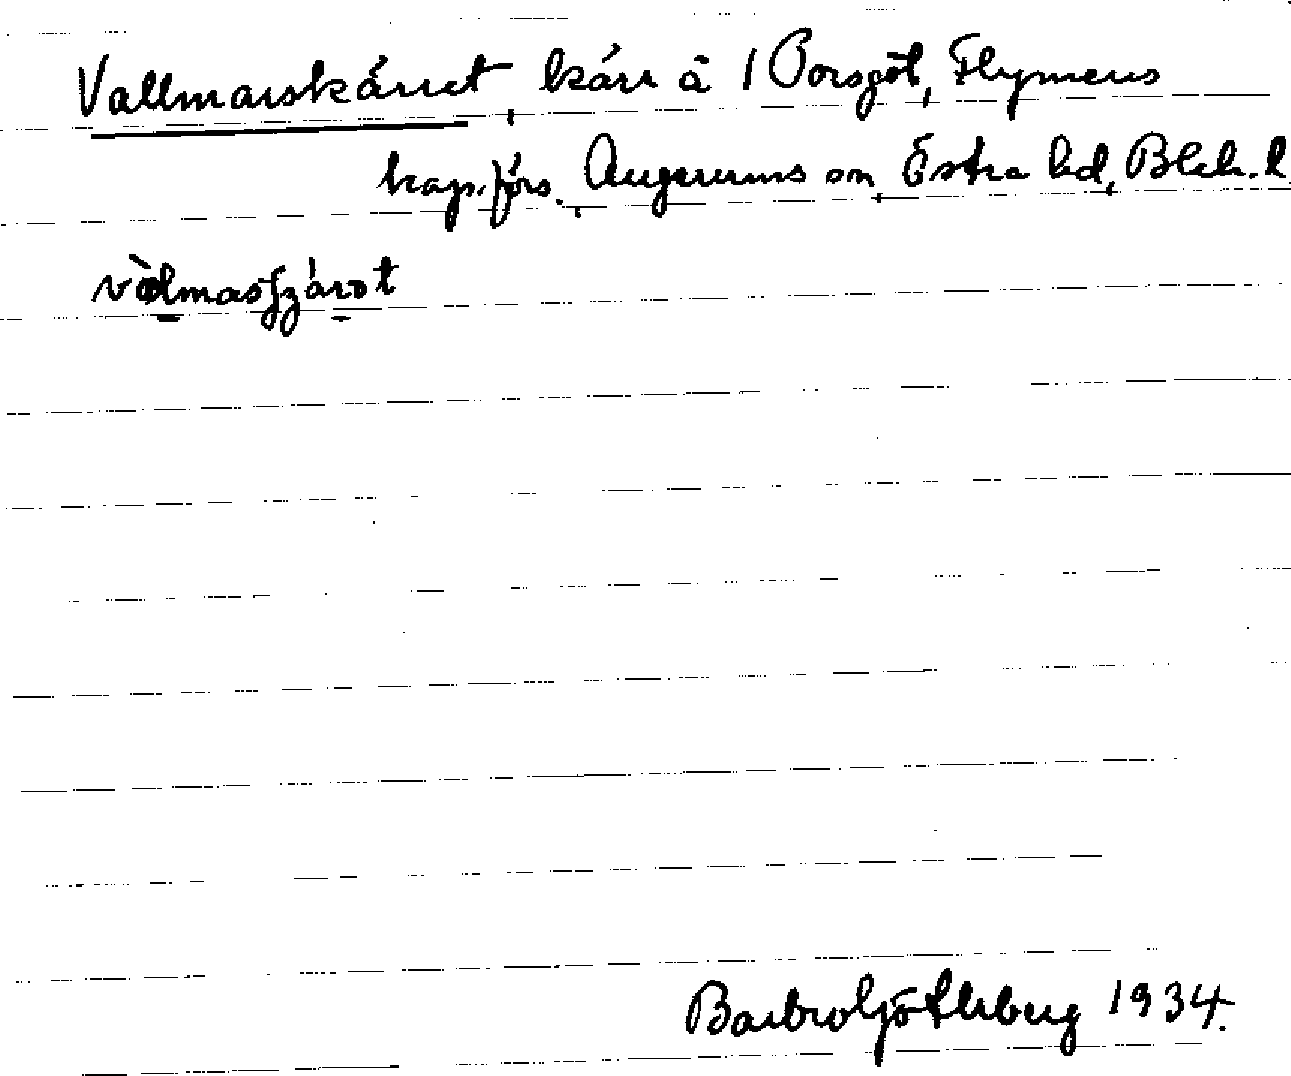 Vallmarskärret, kärr å 1 Porsgöl, Flymens
kap.förs., Augerums sn, Östra hd, Blek. l
Barbro Götherberg 1934.